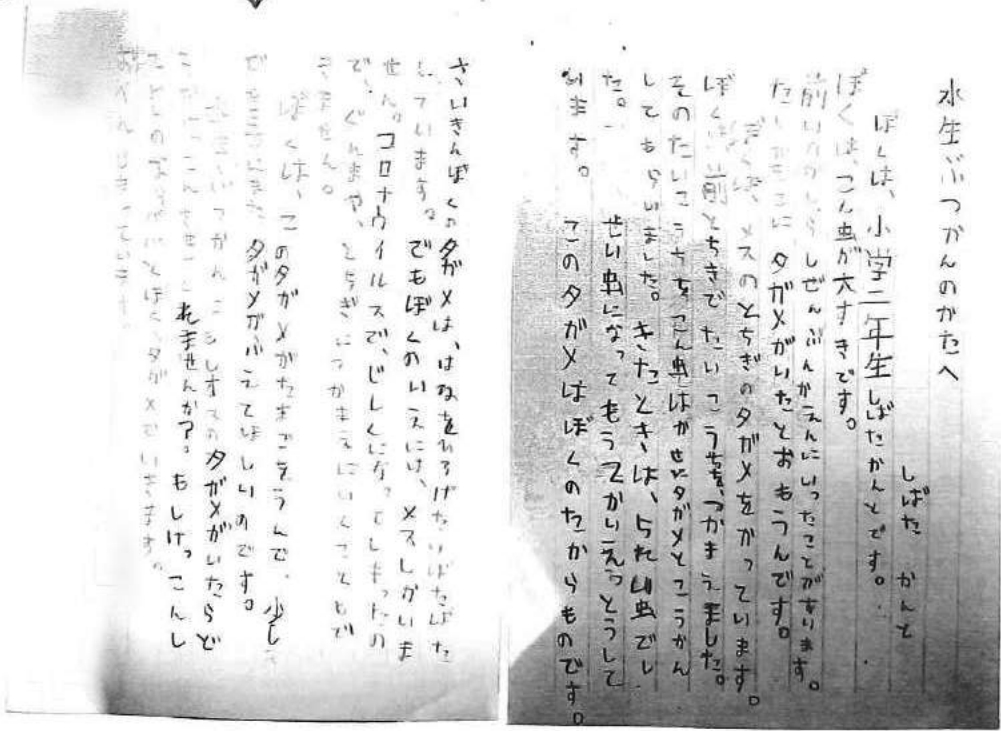 水生ぶつかんのかたへ
しばた かんと
ぼくは、小学二年生しばたかんとです。
ぼくは、こん虫が大すきです。
前いわ しぜんぶんかえんにいったことがあります。
たし そこに タガメがいたとおもうんです。
ぼくは、メスのとちぎのタガメをかっています。
ぼくは前とちぎでたいこうちを、つかまえました。
そのたいこうちを、こん虫はかせにタガメとこうかん
してもらいました。きたときは、らち山虫でし
た。 せい虫になってもうでかいえっとうして
います。 このタガメはぼくのたからものです。
さいきんぼくのタガメは、はねをひろげたりばたばた
しています。でもぼくのいえには、メスしかいま
せん。コロナウイルスで、じしくになってしまったの
で、ぐんまや、とちぎにつかまえにいくことがで
きません。
ぼくは、このタガメがたまごをうんで、少し
でも タガメがふえてほしいのです。
水生 つかんに もしオスのタガメがいたらど
れませんか？。もしけっこんし
タガメ いきます。